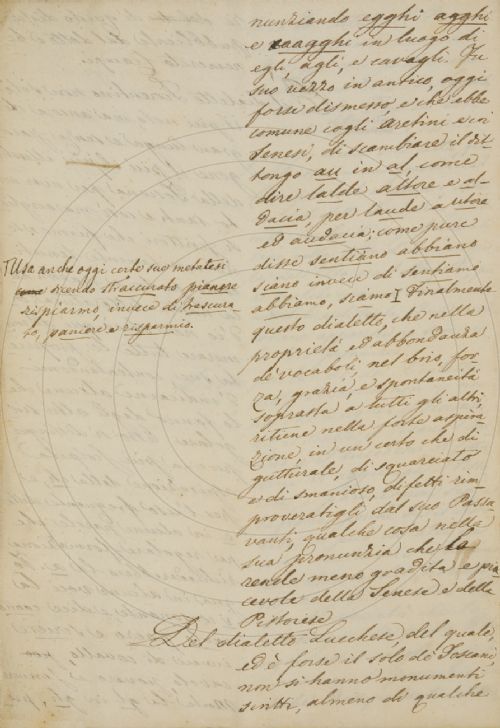 nunziando egghi agghi
e caagghi in luogo di
egli, agli, e cavagli. Fu
suo vezzo in antico, oggi
forse dismesso, e che ebbe
comune cogli Aretini e coi
Senesi, di scambiare il dit-
tongo au in al, come
dire lalde altore e al-
dacia, per laude autore
ed audacia; come pure
disse sentiano abbiano
siano invece di sentiamo
abbiamo, siamo. Finalmente
questo dialetto, che nella
proprietà ed abbondanza
de' vocaboli, nel brio, for-
za, grazia, e spontaneità
soprasta a tutti gli altri,
ritiene nella forte aspira-
zione, in un certo che di
gutturale, di squarciato
e di smanioso, difetti rim-
proveratigli dal suo Passa-
vanti, qualche cosa nella
sua pronunzia che la
rende meno gradita e pia-
cevole della Senese e della
Pistoiese
Del dialetto Lucchese del quale,
ed è forse il solo de' Toscani
non si hanno monumenti
scritti, almeno di qualche
Usa anche oggi certe sue metatesi
dicendo straccurato pianere
rispiarmo, invece di trascura-
to, paniere e risparmio.